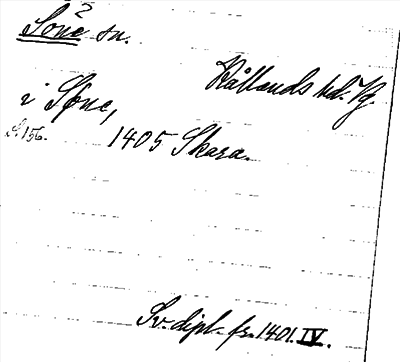 Söne sn.
Kållands hd. Vg.
i Søne,
S. 156.
1405 Skara.
Sv. dipl. fr. 1401. IV.